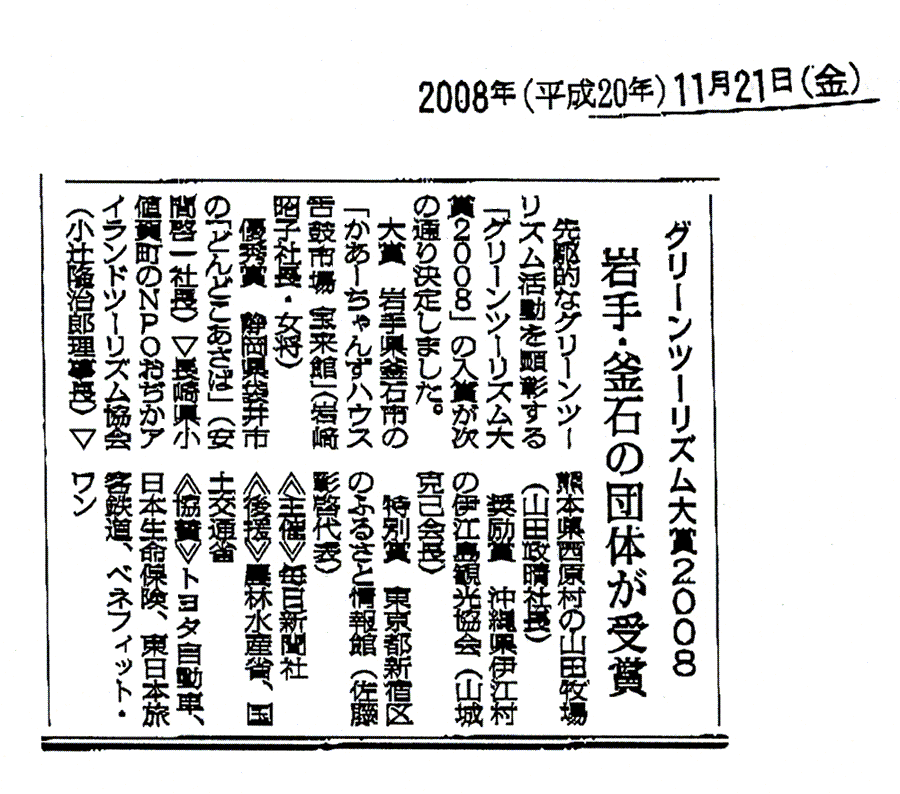 2008年(平成20年)11月21日(金)
グリーンツーリズム大賞2008
岩手・釜石の団体が受賞
先駆的なグリーンツー
リズム活動を顕彰する
「グリーンツーリズム大
賞2008」の入賞が次
の通り決定しました。
大賞 岩手県釜石市の
「かあーちゃんずハウス
舌鼓市場 宝来館」(岩崎
昭子社長・女将)
優秀賞 静岡県袋井市
の「どんどこあさば」(安
間啓一社長)▽長崎県小
値賀町のNPOおぢかア
イランドツーリズム協会
(小辻隆治郎理事長)▽
熊本県西原村の山田牧場
(山田政晴社長)
奨励賞 沖縄県伊江村
の伊江島観光協会(山城
克己会長)
特別賞 東京都新宿区
のふるさと情報館(佐藤
彰啓代表)
《主催》毎日新聞社
《後援》農林水産省、国
土交通省
《協賛》トヨタ自動車、
日本生命保険、東日本旅
客鉄道、ベネフィット・
ワン